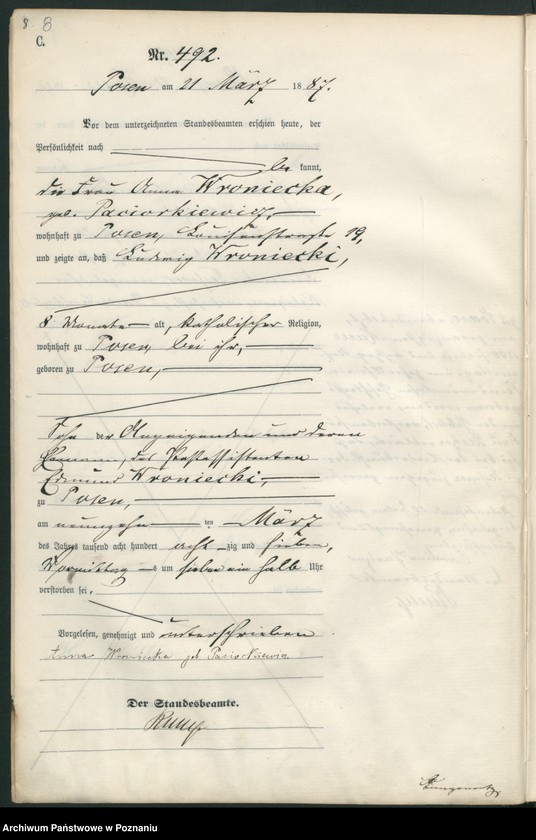 8 8
C.
Nr. 492.
Posen am 21 März 1887.
Vor dem unterzeichneten Standesbeamten erschien heute, der
Persönlichkeit nach
be kannt,
die Frau Anna Wroniecka,
geb. Paciorkiewicz,
wohnhaft zu Posen, Louisenstraße 19,
und zeigte an, daß Ludwig Wroniecki,
8 Monate alt, katholischer Religion,
wohnhaft zu Posen, bei ihr,
geboren zu Posen,
Sohn der Anzeigenden und deren
Ehemann, des Postassistenten
Edmund Wroniecki,
zu Posen,
am neunzehn ten März
des Jahres tausend acht hundert acht zig und sieben,
Vormittag s um sieben ein halb Uhr
verstorben sei.
Vorgelesen, genehmigt und unterschrieben
Anna Wroniecka geb Paciorkiewicz
Der Standesbeamte.
Archiwum Państwowe w Poznaniu